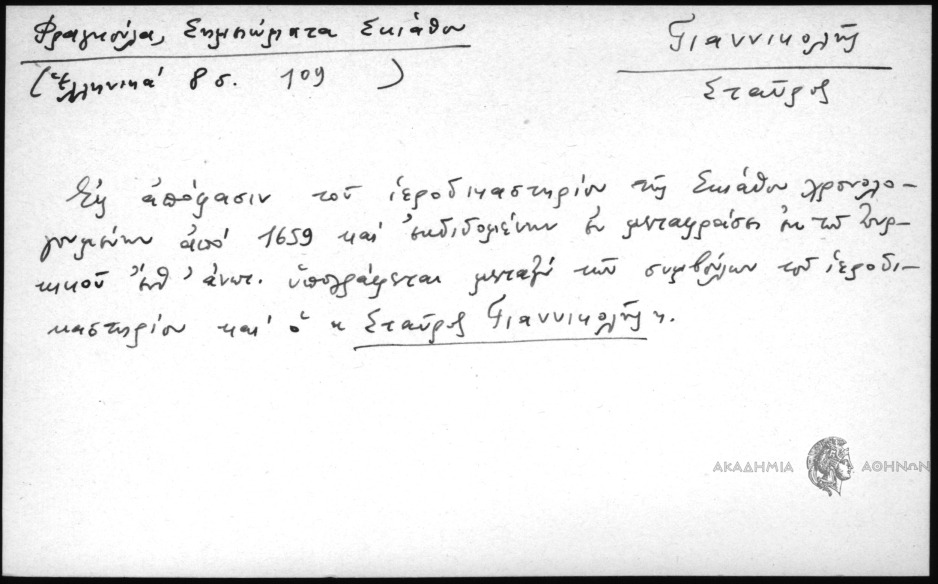 Φραγκούλα, Σημειώματα Σκιάθου
(Ἑλληνικά 8 σ. 109)
Γιαννικολῆς
Σταῦρος
Εἰς ἀπόφασιν τοῦ ἱεροδικαστηρίου τῆς Σκιάθου χρονολο-
γουμένην ἀπό 1659 καί ἐκδιδομένην ἐν μεταφράσει ἐκ τοῦ τουρ-
κικοῦ ἔνθ' ἀνωτ. ὑπογράφεται μεταξύ τῶν συμβούλων τοῦ ἱεροδι-
καστηρίου καί ὁ "Σταῦρος Γιαννικολῆς".
ΑΚΑΔΗΜΙΑ ΑΘΗΝΩΝ